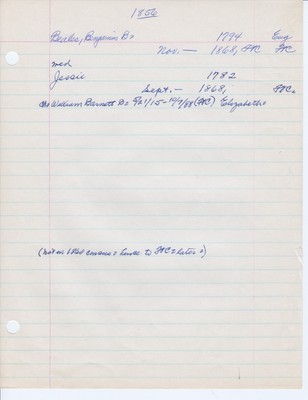 1856
Beales, Benjamin B= 1794 Eng
Nov. — 1868, FTC FTC
wed
Jessie 1782
Sept. — 1868, FTC=
Ch= William Barnett B= 9/21/15 - 10/7/88 (FTC) Elizabeth=
(not in 1860 census= hence to FTC= later=)